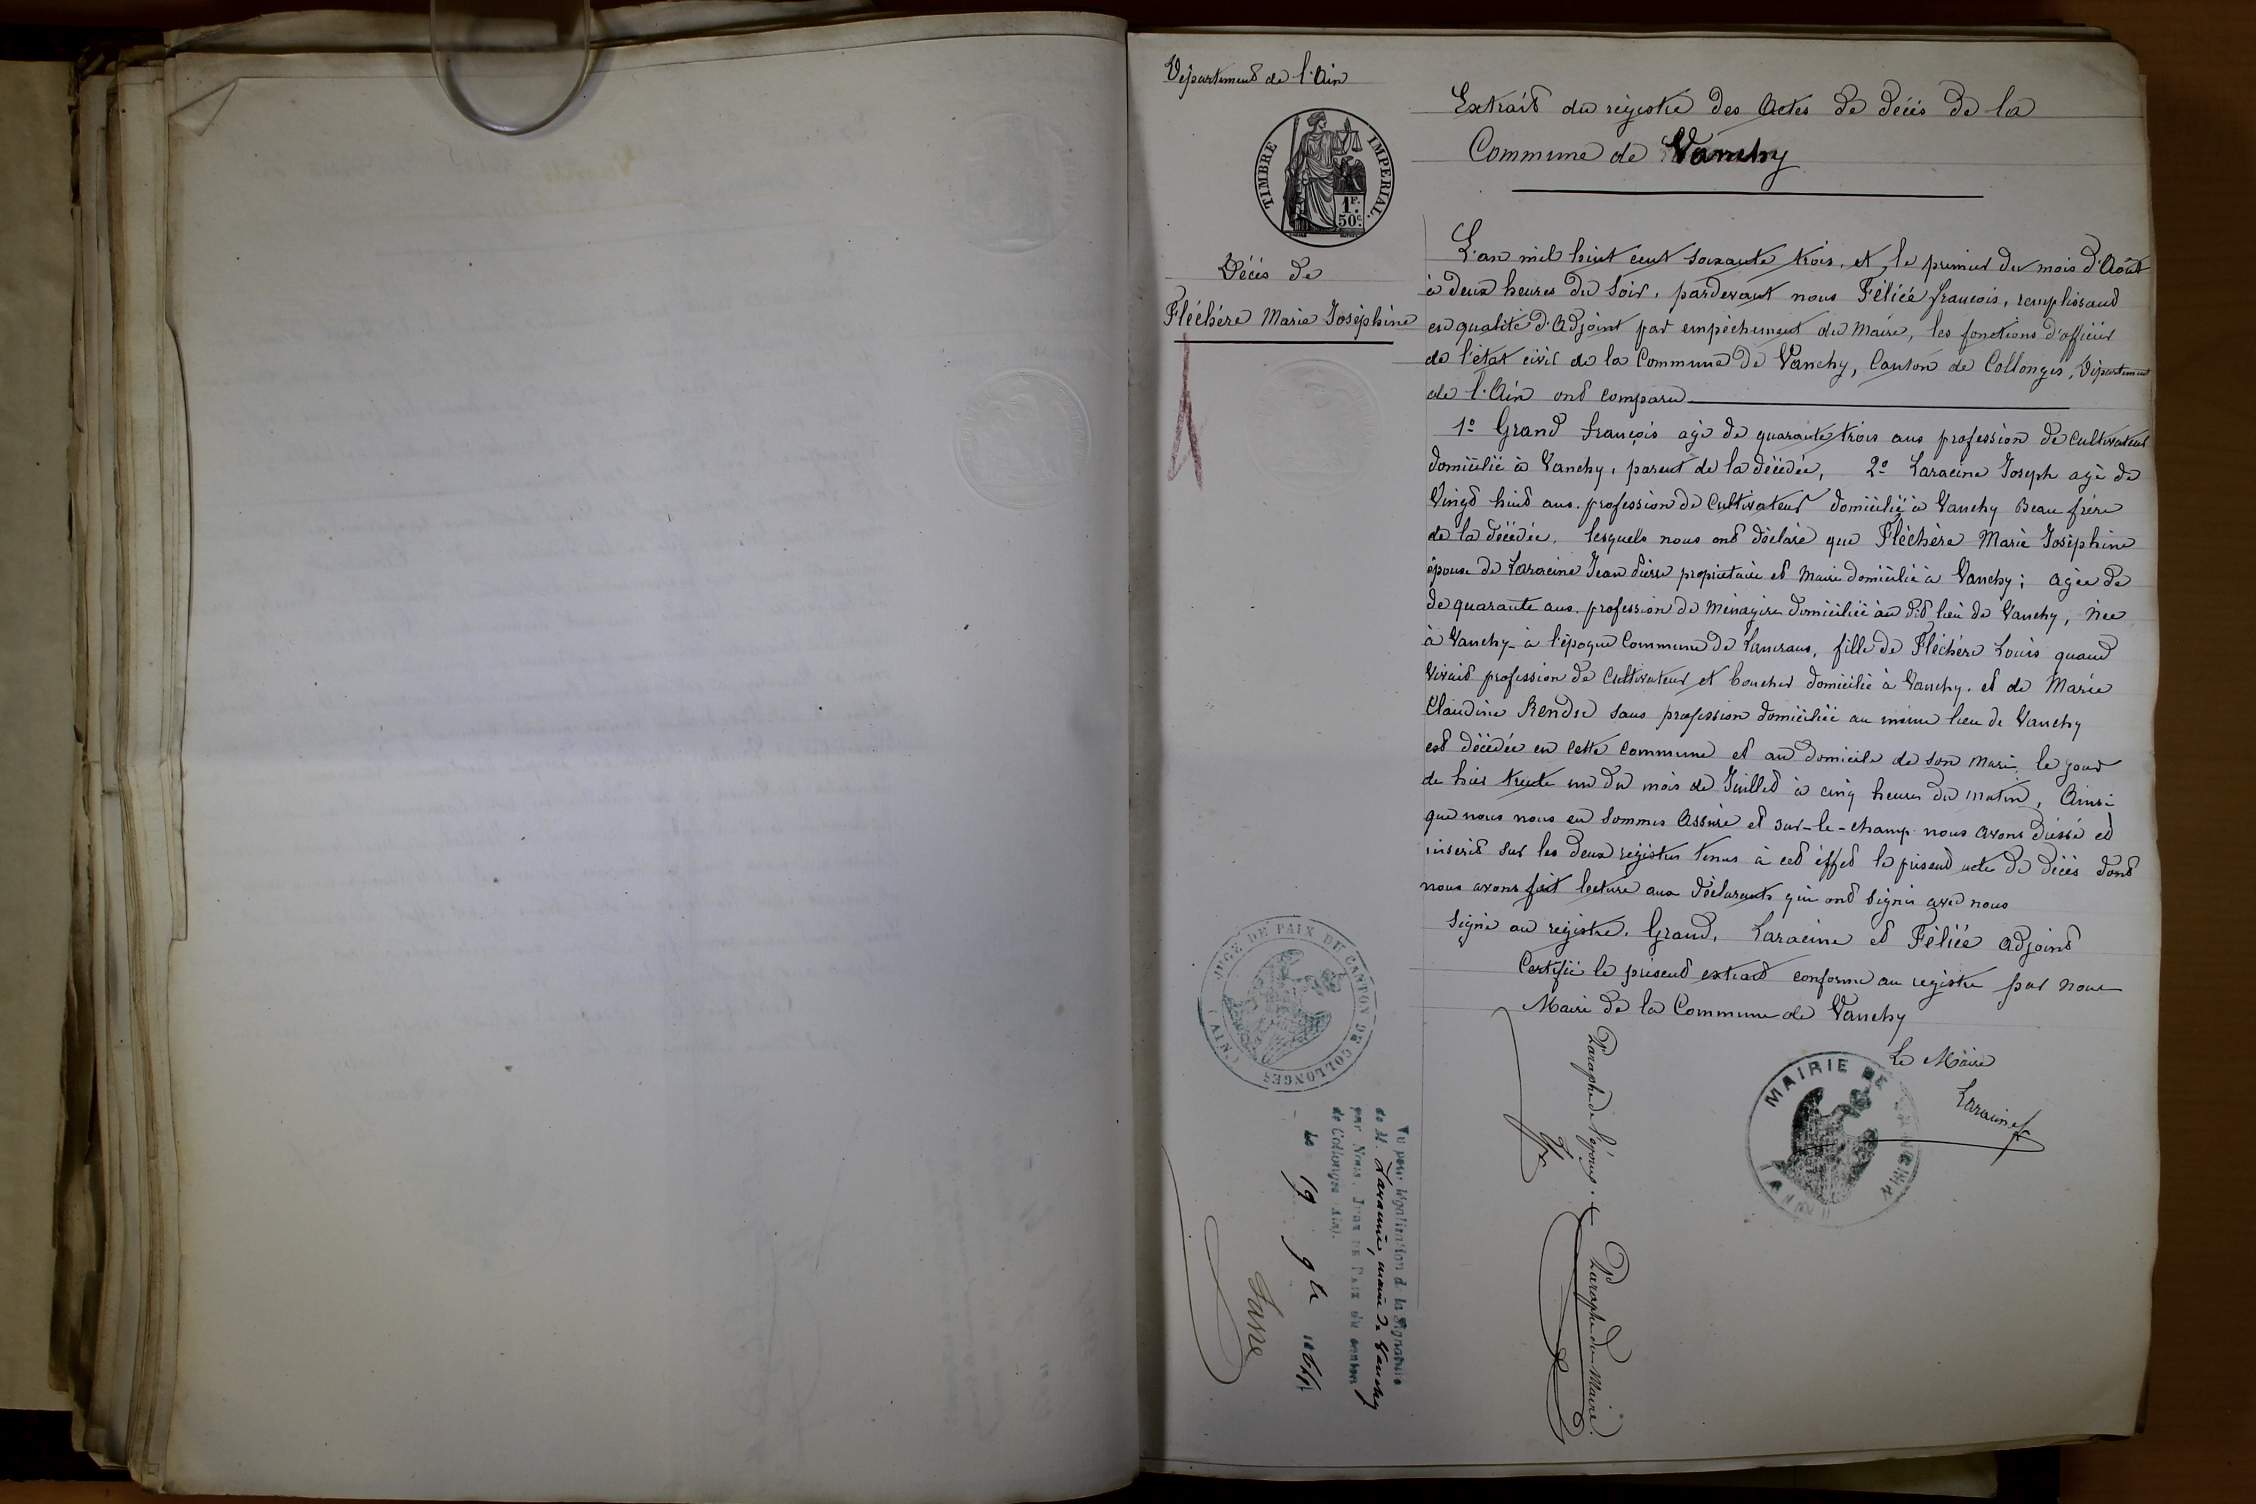 Département de l'Ain
TIMBRE IMPERIAL.
1F.
50c.
Décès de
Fléchère Marie Joséphine
Extrait du régistre des Actes de décès de la
Commune de Vanchy
L'an mil huit cent soixante trois, et le premier du mois d'Août
à deux heures du soir, pardevant nous Féliée françois, remplissant
en qualité d'Adjoint par empèchement du Maire, les fonctions d'officier
de l'état civil de la Commune de Vanchy, Canton de Collonges, Département
de l'Ain ont comparu
1º Grand françois agé de quarante trois ans profession de cultivateur
domicilié à Vanchy, parent de la décédée, 2º Laracine Joseph agé de
Vingt huit ans profession de Cultivateur domicilié à Vanchy Beau frère
de la décédée, lesquels nous ont déclaré que Fléchère Marie Joséphine
épouse de Laracine Jean Pierre propriétaire et Maire domicilié à Vanchy; agée de
de quarante ans profession de Ménagère domiciliée au dit lieu de Vanchy, née
à Vanchy à l'époque Commune de Lancrans, fille de Fléchère Louis quand
Vivait profession de Cultivateur et boucher domicilié à Vanchy et de Marie
Claudine Rendu sans profession domiciliée au même lieu de Vanchy
est décédée en cette commune et au domicile de son mari, le jour
de hier trente un du mois de Juillet à cinq heures du matin, Ainsi
que nous nous en sommes Assuré et sur-le-champ nous avons dressé et
inscrit sur les deux régistres tenus à cet éffet le présent acte de décès dont
nous avons fait lecture aux déclarants qui ont signés avec nous
Signé au régistre, Grand, Laracine et Féliée adjoint
Certifié le présent extrait conforme au régistre par nous
Maire de la Commune de Vanchy
Le Maire
Laracine
MAIRIE DE VANCHY (AIN)
Paraphe de l'époux.
Paraphe du Maire.
JUGE DE PAIX DU CANTON DE COLLONGES (AIN)
Vu pour légalisation de la Signature
de M. Laracine, maire de Vanchy
par Nous, JUGE DE PAIX du canton
de Collonges (Ain).
Le 19 9bre 1864